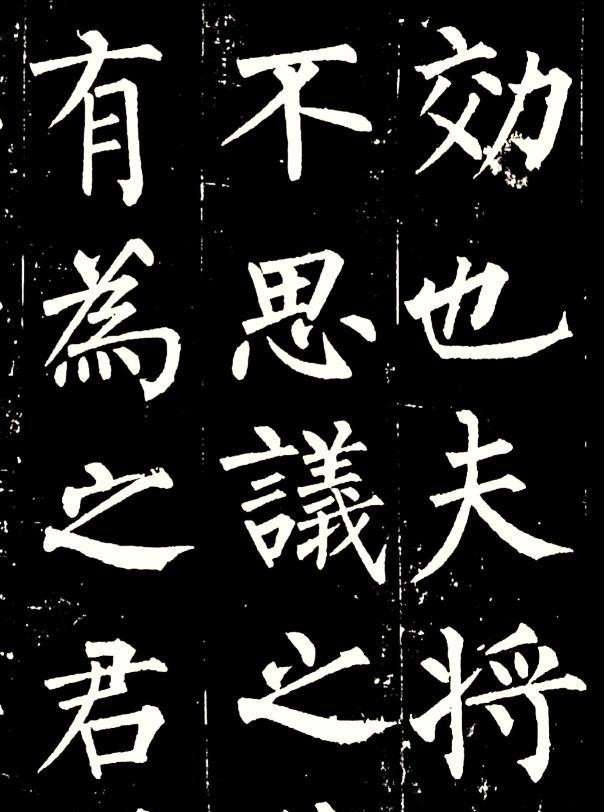 効也夫将
不思議之
有為之君